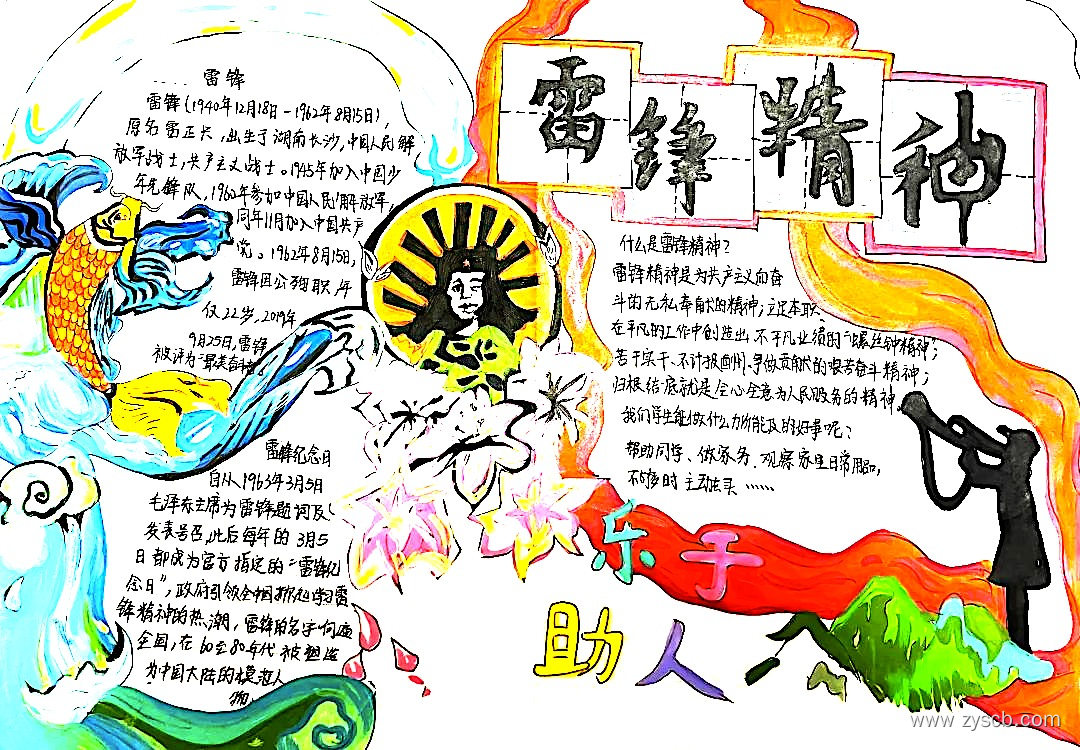 雷锋精神
雷锋
雷锋(1940年12月18日-1962年8月15日),
原名雷正兴,出生于湖南长沙,中国人民解
放军战士,共产主义战士。1945年加入中国少
年先锋队,1960年参加中国人民解放军,
同年11月加入中国共产
党。1962年8月15日,
雷锋因公殉职,年
仅22岁,2019年
9月25日,雷锋
被评为“最美奋斗者
雷锋纪念日
自从1963年3月5日
毛泽东主席为雷锋题词及
发表号召,此后每年的3月5
日都成为官方指定的“雷锋纪
念日”,政府引领全国掀起学习雷
锋精神的热潮,雷锋的名字响遍
全国,在60至80年代被塑造
为中国大陆的模范人
物
什么是雷锋精神?
雷锋精神是为共产主义而奋
斗的无私奉献的精神;立足本职、
在平凡的工作中创造出不平凡业绩的“螺丝钉精神”;
苦干实干、不计报酬、争做贡献的艰苦奋斗精神;
归根结底就是全心全意为人民服务的精神。
我们学生能做什么力所能及的好事呢?
帮助同学、做家务、观察家里日常用品,
不够时主动去买……
乐于
助人
www.zyscb.com